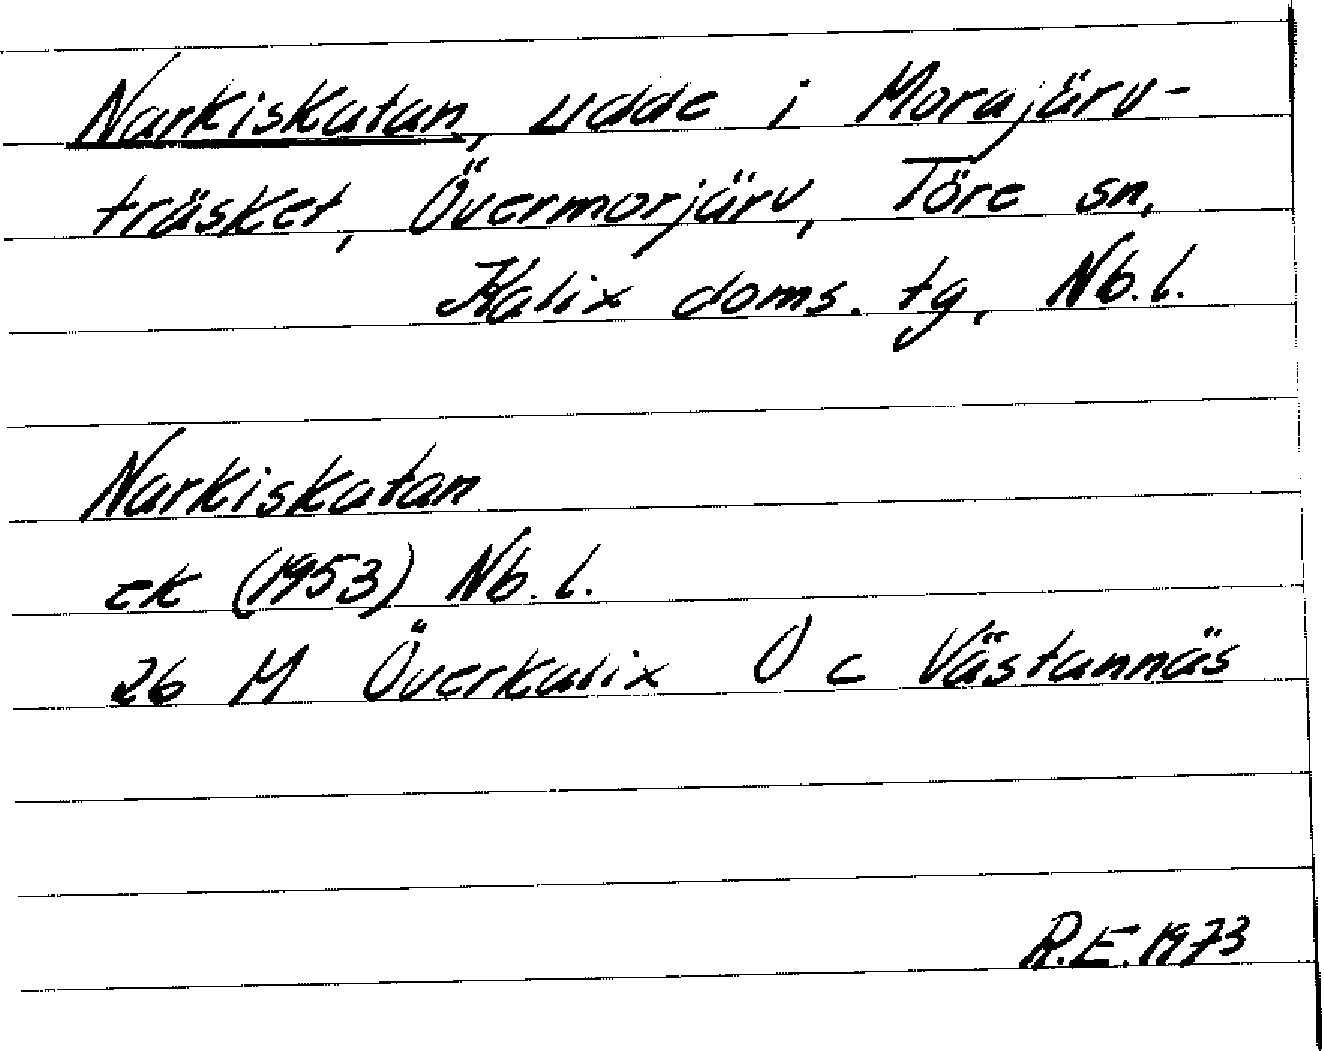 Narkiskatan, udde i Morajärv-
träsket, Övermorjärv, Töre sn,
Kalix doms. tg, Nb. l.
Narkiskatan
ek (1953) Nb. l.
26 M Överkalix Ö c Västannäs
R.E. 1973